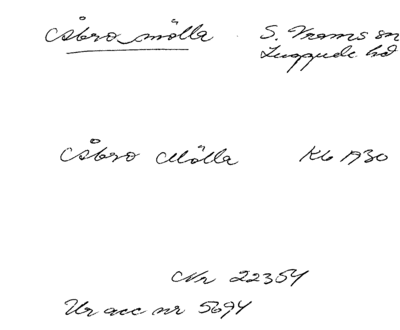 Åbro mölla S. Vrams sn
Luggude hd
Åbro Mölla Kb 1930
Nr 22354
Ur acc nr 5694